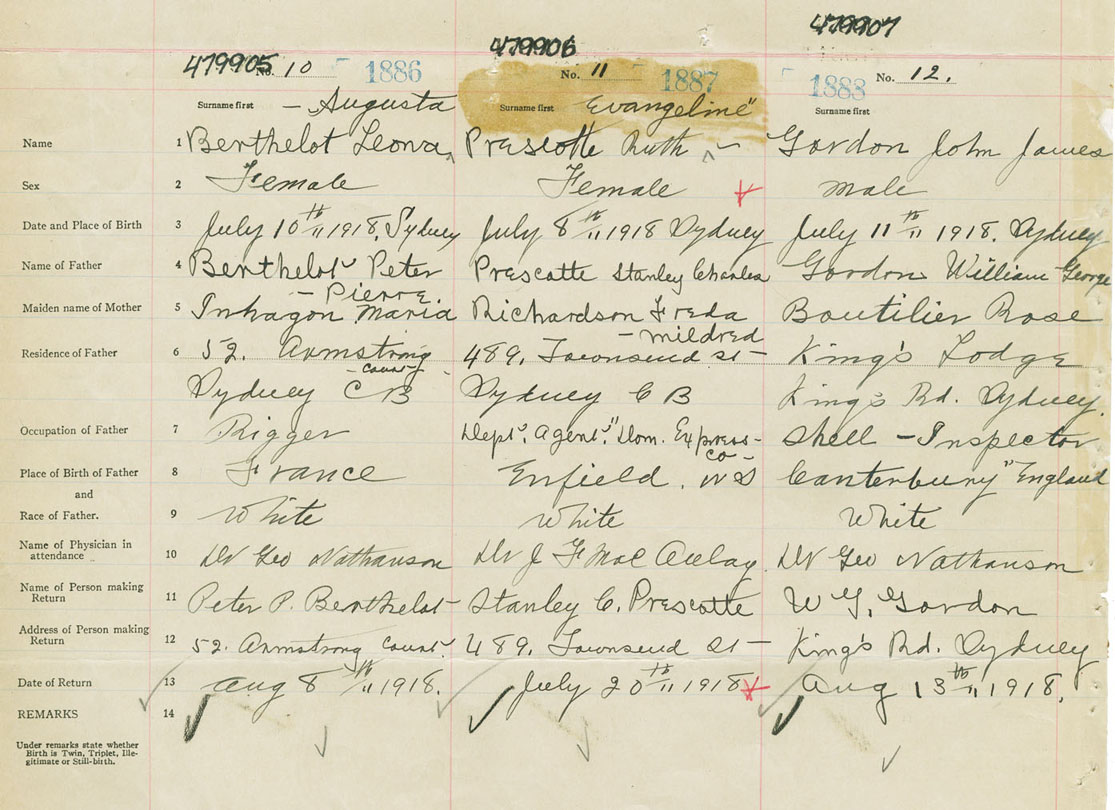 479905 479906 479907
No. 10 1886 No. 11 1887 1888 No. 12.
Surname first – Augusta Surname first Evangeline" Surname first
Name 1 Berthelot Leona Prescotte Ruth Gordon John James
Sex 2 Female Female male
Date and Place of Birth 3 July 10th 1918. Sydney July 8th 1918 Sydney July 11th 1918. Sydney
Name of Father 4 Berthelot Peter Prescotte Stanley Charles Gordon William George
– Pierre.
Maiden name of Mother 5 Maria Richardson Freda Boutilier Rose
– mildred
Residence of Father 6 52. Armstrong 489. Townsend St – King's Lodge
– Court –
Sydney C B Sydney C B King's Rd. Sydney.
Occupation of Father 7 Rigger Dept. Agent." Dom. Express – Shell – Inspector
Co –
Place of Birth of Father 8 France Enfield. N S Canterbury" England
and
Race of Father. 9 White White White
Name of Physician in
attendance 10 Dr Geo Nathanson Dr J F Mac Aulay. Dr Geo Nathanson
Name of Person making
Return 11 Peter P. Berthelot – Stanley C. Prescotte W G. Gordon
Address of Person making
Return 12 52. Armstrong Court 489. Townsend St – King's Rd. Sydney
Date of Return 13 Aug 8th 1918. July 20th 1918 Aug 13th 1918.
REMARKS 14
Under remarks state whether
Birth is Twin, Triplet, Ille-
gitimate or Still-birth.